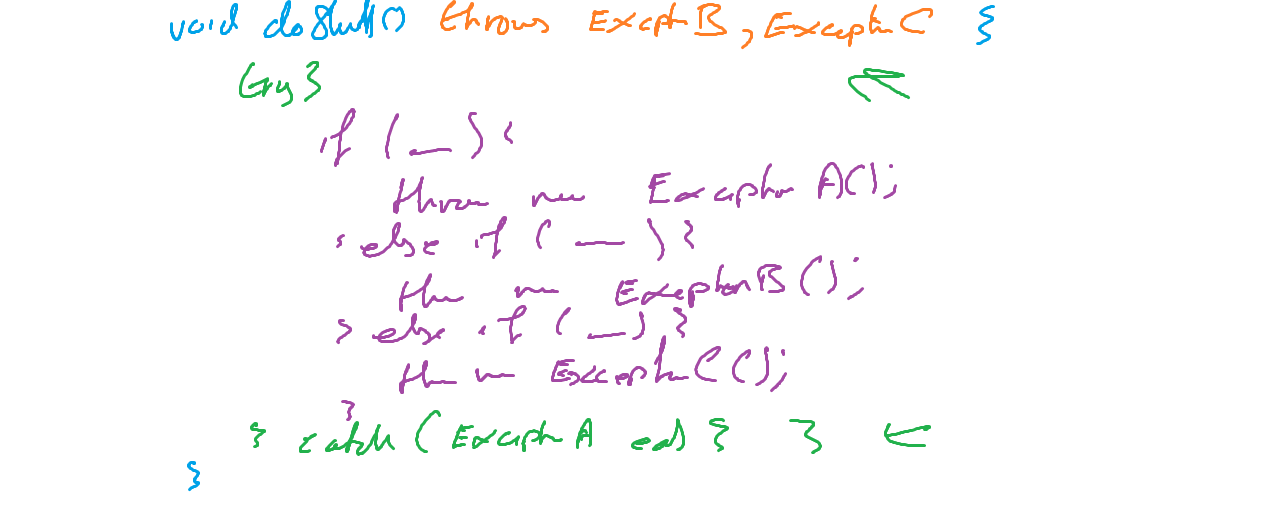 void doStuff() throws ExceptnB, ExceptnC {
try {
if ( __ ) {
throw new Exception A();
} else if ( __ ) {
throw new ExceptionB();
} else if ( __ ) {
throw new ExceptionC();
}
} catch (Exceptn A ea) { }
}